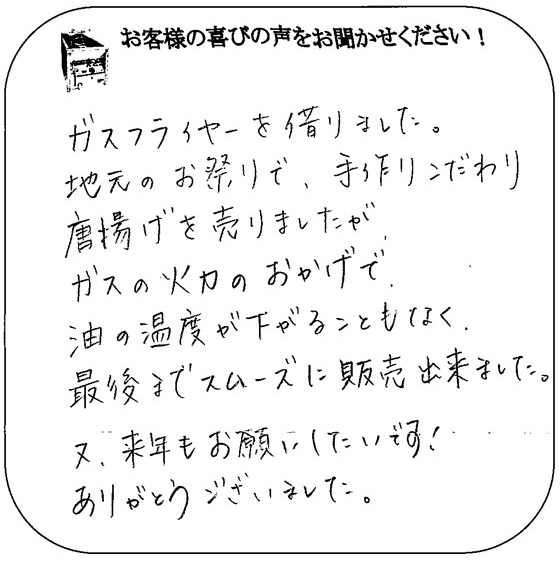 お客様の喜びの声をお聞かせください！
ガスフライヤーを借りました。
地元のお祭りで、手作りこだわり
唐揚げを売りましたが、
ガスの火力のおかげで、
油の温度が下がることもなく、
最後までスムーズに販売出来ました。
又、来年もお願いしたいです！
ありがとうございました。